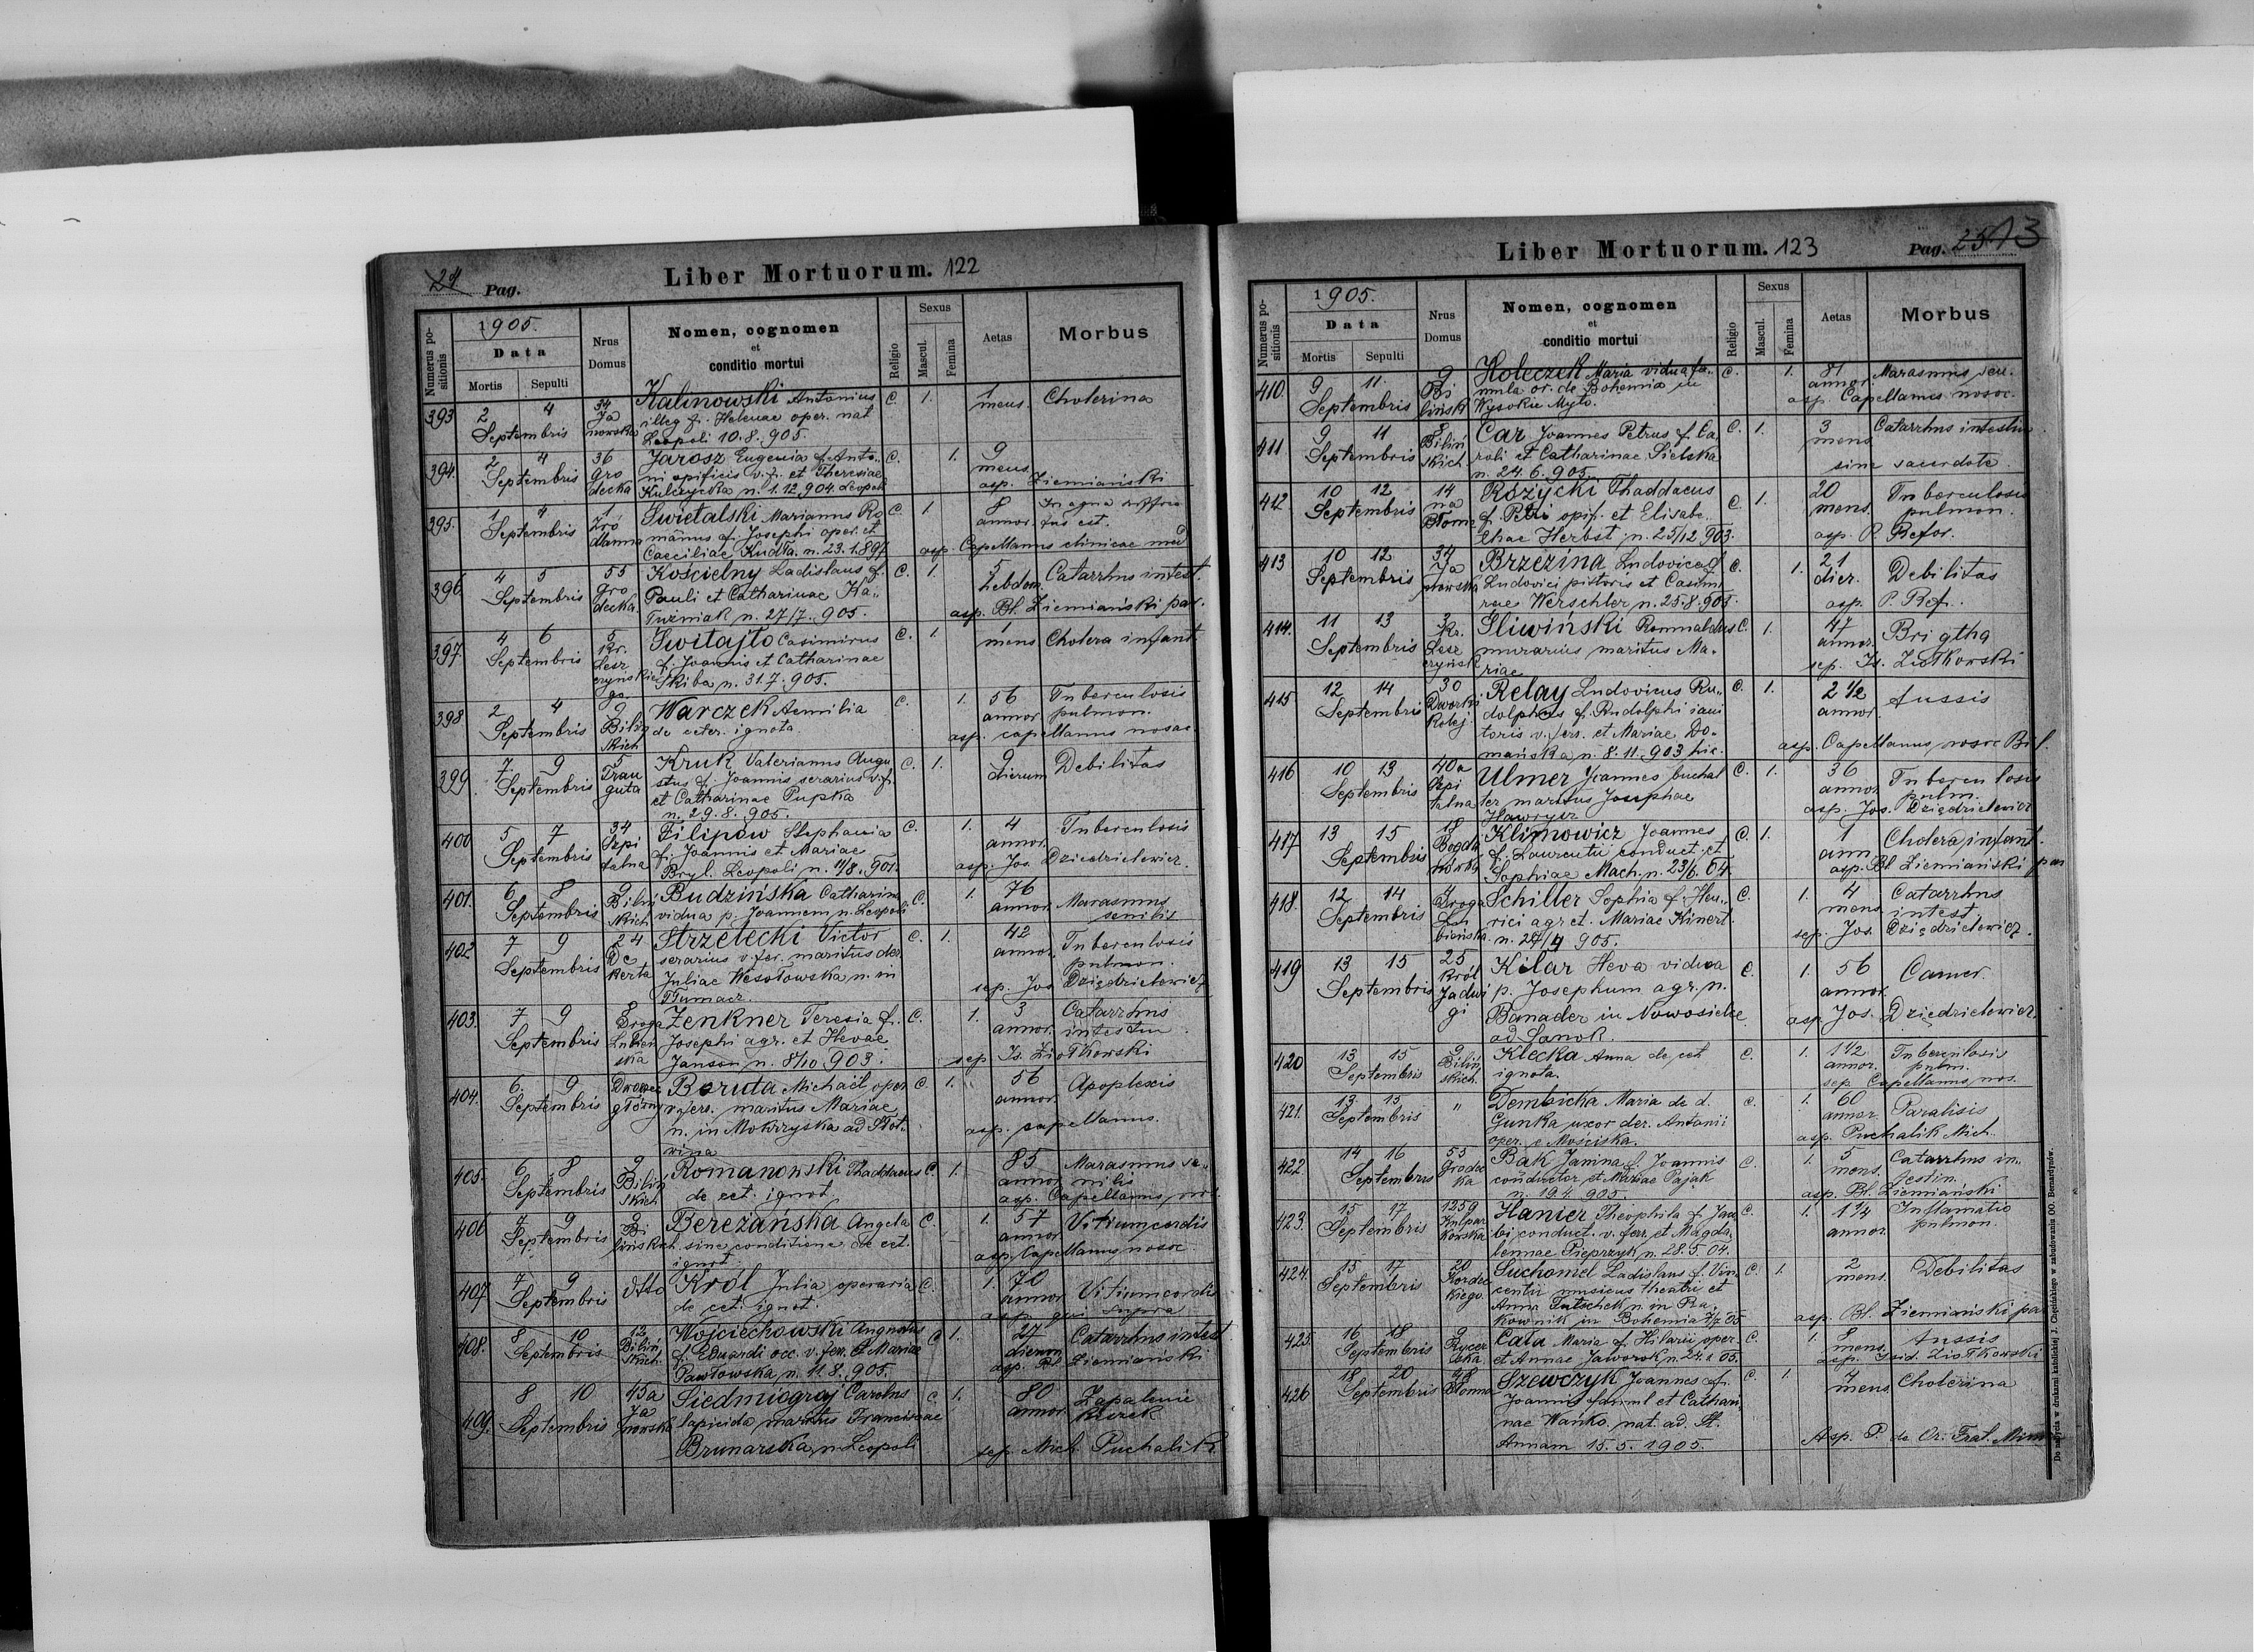 24 Pag.
Liber Mortuorum. 122
Numerus positionis
1905.
Data
Mortis
Sepulti
Nrus Domus
Nomen, cognomen
et
conditio mortui
Religio
Sexus
Mascul.
Femina
Aetas
Morbus
393 2 4 Septembris 34 Janowska Kalinowski Antonius C. 1. 1 mens. Cholerina
illeg. f. Helenae oper. nat
Leopoli 10.8.905.
394. 2 4 Septembris 36 Grodecka Jarosz Eugenia f. Anto- C. 1. 9 mens.
ni opificis v.f. et Theresiae
Kulczycka n. 1.12.904. Leopoli asp. Ziemiański
395. 1 4 Septembris 1 Źródlanna Swietalski Marianus Ro C. 1 8 annor. In aqua suffocatus est.
manus f. Josephi oper. et
Caeciliae Kudła. n. 23.1.897 asp. Capellanus clinicae med
396 4 5 Septembris 55 Grodecka Kościelny Ladislaus f. C. 1. 5 hebdom. Catarrhus intest.
Pauli et Catharinae Ka-
Tuźniak n. 27/7. 905. asp. Bl. Ziemiański par.
397 4 6 Septembris 5 Kr. Leszczyńskiego Switajto Casimirus C. 1. 1 mens Cholera infant.
f. Joannis et Catharinae
Skiba n. 31.7.905.
398 2 4 Septembris 9 Bilińskich Warczek Aemilia C. 1. 56 annor. Tuberculosis pulmon.
de ceter. ignota. asp. capellanus nosoc.
399 7 9 Septembris 5 Trauguta Kruk Valerianus Augu C. 1. 9 dierum Debilitas
stus f. Joannis serarius v.f.
et Catharinae Pupka
n. 29.8.905.
400 5 7 Septembris 34 Szpitalna Filipów Stephania C. 1. 4 annor. Tuberculosis
f. Joannis et Mariae
Bryl. Leopoli n. 11/8. 901. asp. Jos. Dziedzielewicz.
401. 6 8 Septembris 9 Bilińskich Budzińska Catharina C. 1. 76 annor. Marasmus senilis
vidua p. Joannem n. Leopoli
402 7 9 Septembris 24 Dekerta Strzelecki Victor C. 1. 42 annor. Tuberculosis pulmon.
serarius v. fer. maritus der.
Juliae Wesołowska n. in
Tłumacz. sep. Jos. Dziędzielewicz
403. 7 9 Septembris 8 Droga Lubieńska Zenkner Teresia f. C. 1. 3 annor. Catarrhus intestin.
Josephi agr. et Hevae
Janson n. 8/10 903. sep. Is. Ziołkowski
404. 6. 9 Septembris Dworzec główny Boruta Michaël oper C. 1. 56 annor. Apoplexis
v. fers. maritus Mariae
n. in Mokrzyska ad Słot-
wina asp. capellanus.
405. 6 8 Septembris 9 Bilińskich Romanowski Thaddaeus C. 1. 85 annor. Marasmus senilis
de cet. ignot. asp. Capellanus nos.
406 7 9 Septembris 9 Bilińskich Bereżańska Angela C. 1. 57 annor Vitium cordis
sine conditione de cet.
ignot. asp. Capellanus nosoc.
407 7 9 Septembris dtto Król Julia operaria C. 1. 70 annor Vitium cordis
de cet. ignot. asp. qui supra
408. 8 10 Septembris 12 Bilińskich Wojciechowski Augustus C 1. 27 dierum Catarrhus intest
f. Eduardi occ. v. ferr. et Mariae
Pawłowska n. 11.8.905. asp. Bl. Ziemiański
409. 8 10 Septembris 45a Janowska Siedmiograj Carolus C 1. 80 annor. Zapalenie kiszek
lapicida maritus Franciscae
Brunarska n. Leopoli sep. Mich. Puchalik
Liber Mortuorum. 123
Pag. 25 13
Numerus positionis
1905.
Data
Mortis
Sepulti
Nrus Domus
Nomen, cognomen
et
conditio mortui
Religio
Sexus
Mascul.
Femina
Aetas
Morbus
410. 9 11. Septembris 9 Bilińsk Holeczek Maria vidua fa- C. 1. 81 annor. Marasmus sen.
mula or. de Bohemia in
Wysokie Myto. asp. Capellanus nosoc.
411 9 11 Septembris 8 Bilińskich. Car Joannes Petrus f. Ca C. 1. 3 mens. Catarrhus intestin.
roli et Catharinae Sielska
n. 24.6.905. sine sacerdote.
412. 10 12 Septembris 14 na Błonie Różycki Thaddaeus C. 1. 20 mens. Tuberculosis pulmon.
f. Petri opif. et Elisabe-
thae Herbst n. 25/12 903. asp. P. Refor.
413 10 12 Septembris 34 Janowska Brzezina Ludovica f C. 1. 21 dier. Debilitas
Ludovici pistoris et Casimi
rae Werschler n. 25.8.905. asp. P. Ref.
414. 11 13 Septembris 3 Kr. Leszczyńsk Śliwiński Romualdus C. 1. 47 annor. Brigthq
murarius maritus Ma-
riae sep. Is. Ziołkowski
415. 12 14 Septembris 30 Dworki Kolej. Relay Ludovicus Ru- C. 1. 2 1/2 annor. tussis
dolphus f. Rudolphi iani
toris v. fers. et Mariae Do-
mańska n. 8.11.903 hic. asp. Capellanus nosoc Bil.
416 10 13 Septembris 40a Szpitalna Ulmer Joannes buchal C. 1. 36 annor. Tuberculosis pulm.
ter maritus Josephae
Hawryer asp. Jos. Dziędzielewicz
417 13 15 Septembris 18 Bogdanówka Klimowicz Joannes C. 1. 1 ann Cholera infant.
f. Laurentii conduct. et
Sophiae Mach. n. 23/6. 04. asp. Bl Ziemiański par
418. 12 14 Septembris 7 Droga Lubieńska. Schiller Sophia f. Hen- C. 1. 4 mens. Catarrhus intest
rici agr. et. Mariae Kinert.
n. 27/4 905. sep. Jos. Dziędzielewicz.
419 13 15 Septembris 25 Król Jadwigi Kilar Heva vidua C. 1. 56 annor. Cancer.
p. Josephum agr. n.
Banader in Nowosielce
ad Sanok. asp. Jos. Dziędzielewicz.
420 13 15 Septembris 9 Bilińskich. Klecka Anna de cet C. 1. 1 1/2 annor. Tuberculosis pulm.
ignota. sep. Capellanus nos.
421. 13 15 Septembris " Dembicka Maria de d. C. 1. 60 annor. Paralisis
Gunka uxor der. Antonii
oper. e Mościska. asp. Puchalik Mich.
422 14 16 Septembris 55 Grodecka Bąk Janina f. Joannis C. 1. 5 mens. Catarrhus intestin.
conductor et Mariae Pająk
n. 19.4.905. asp. Bl. Ziemiański
423. 15 17 Septembris 1259 Kulparkowska Hanier Theophila f. Jaco C. 1. 1 1/4 annor. Inflamatio pulmon.
bi conduct. v. ferr. et Magda
lennae Pieprzyk n. 28.5 04.
424. 15 17 Septembris 20 Kordeckiego. Suchomel Ladislaus f. Vin C. 1. 2 mens. Debilitas
centii musicus theatri et
Anna Tutschek n. in Ra-
kownik in Bohemia 7/7 05 asp. Bl. Ziemiański par
425. 16 18 Septembris 9 Rycerska. Cału Maria f. Hilarii oper. C. 1. 8 mens. tussis
et Annae Jaworok n. 24.1 05. asp. Isid. Ziołkowski
426 18 20 Septembris 48 Błonna Szewczyk Joannes f. C. 1. 4 mens. Cholerina
Joannis famul et Cathari
nae Wańko. nat. ad. St.
Annam 15.5.1905. Asp. P. de Or. Frat. Min
Do nabycia w drukarni katolickiej J. Chęcińskiego w zabudowaniu OO. Bernardynów.